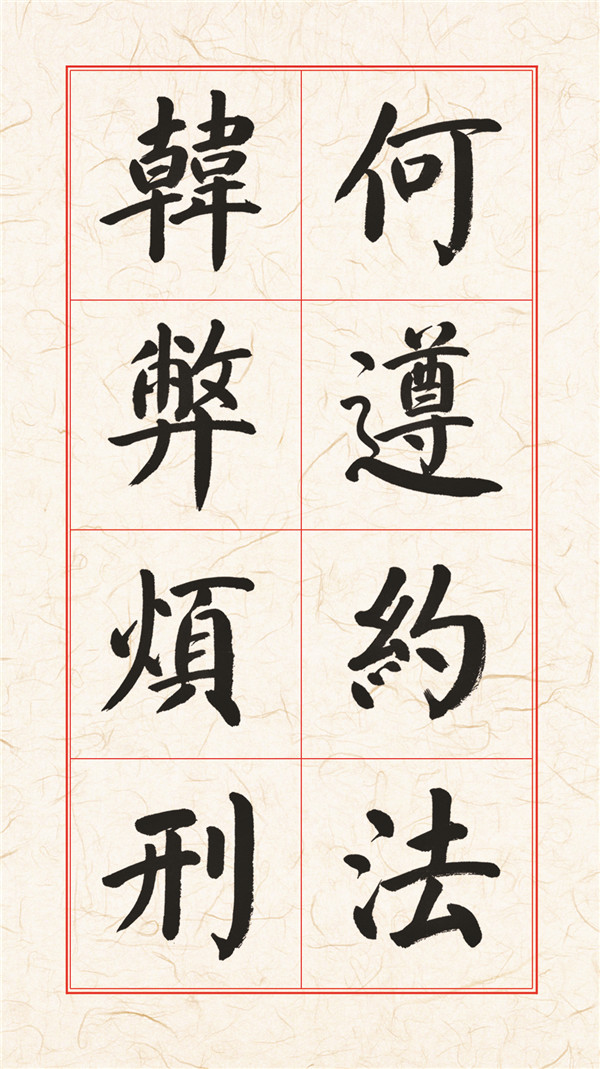 何遵約法
韓弊煩刑